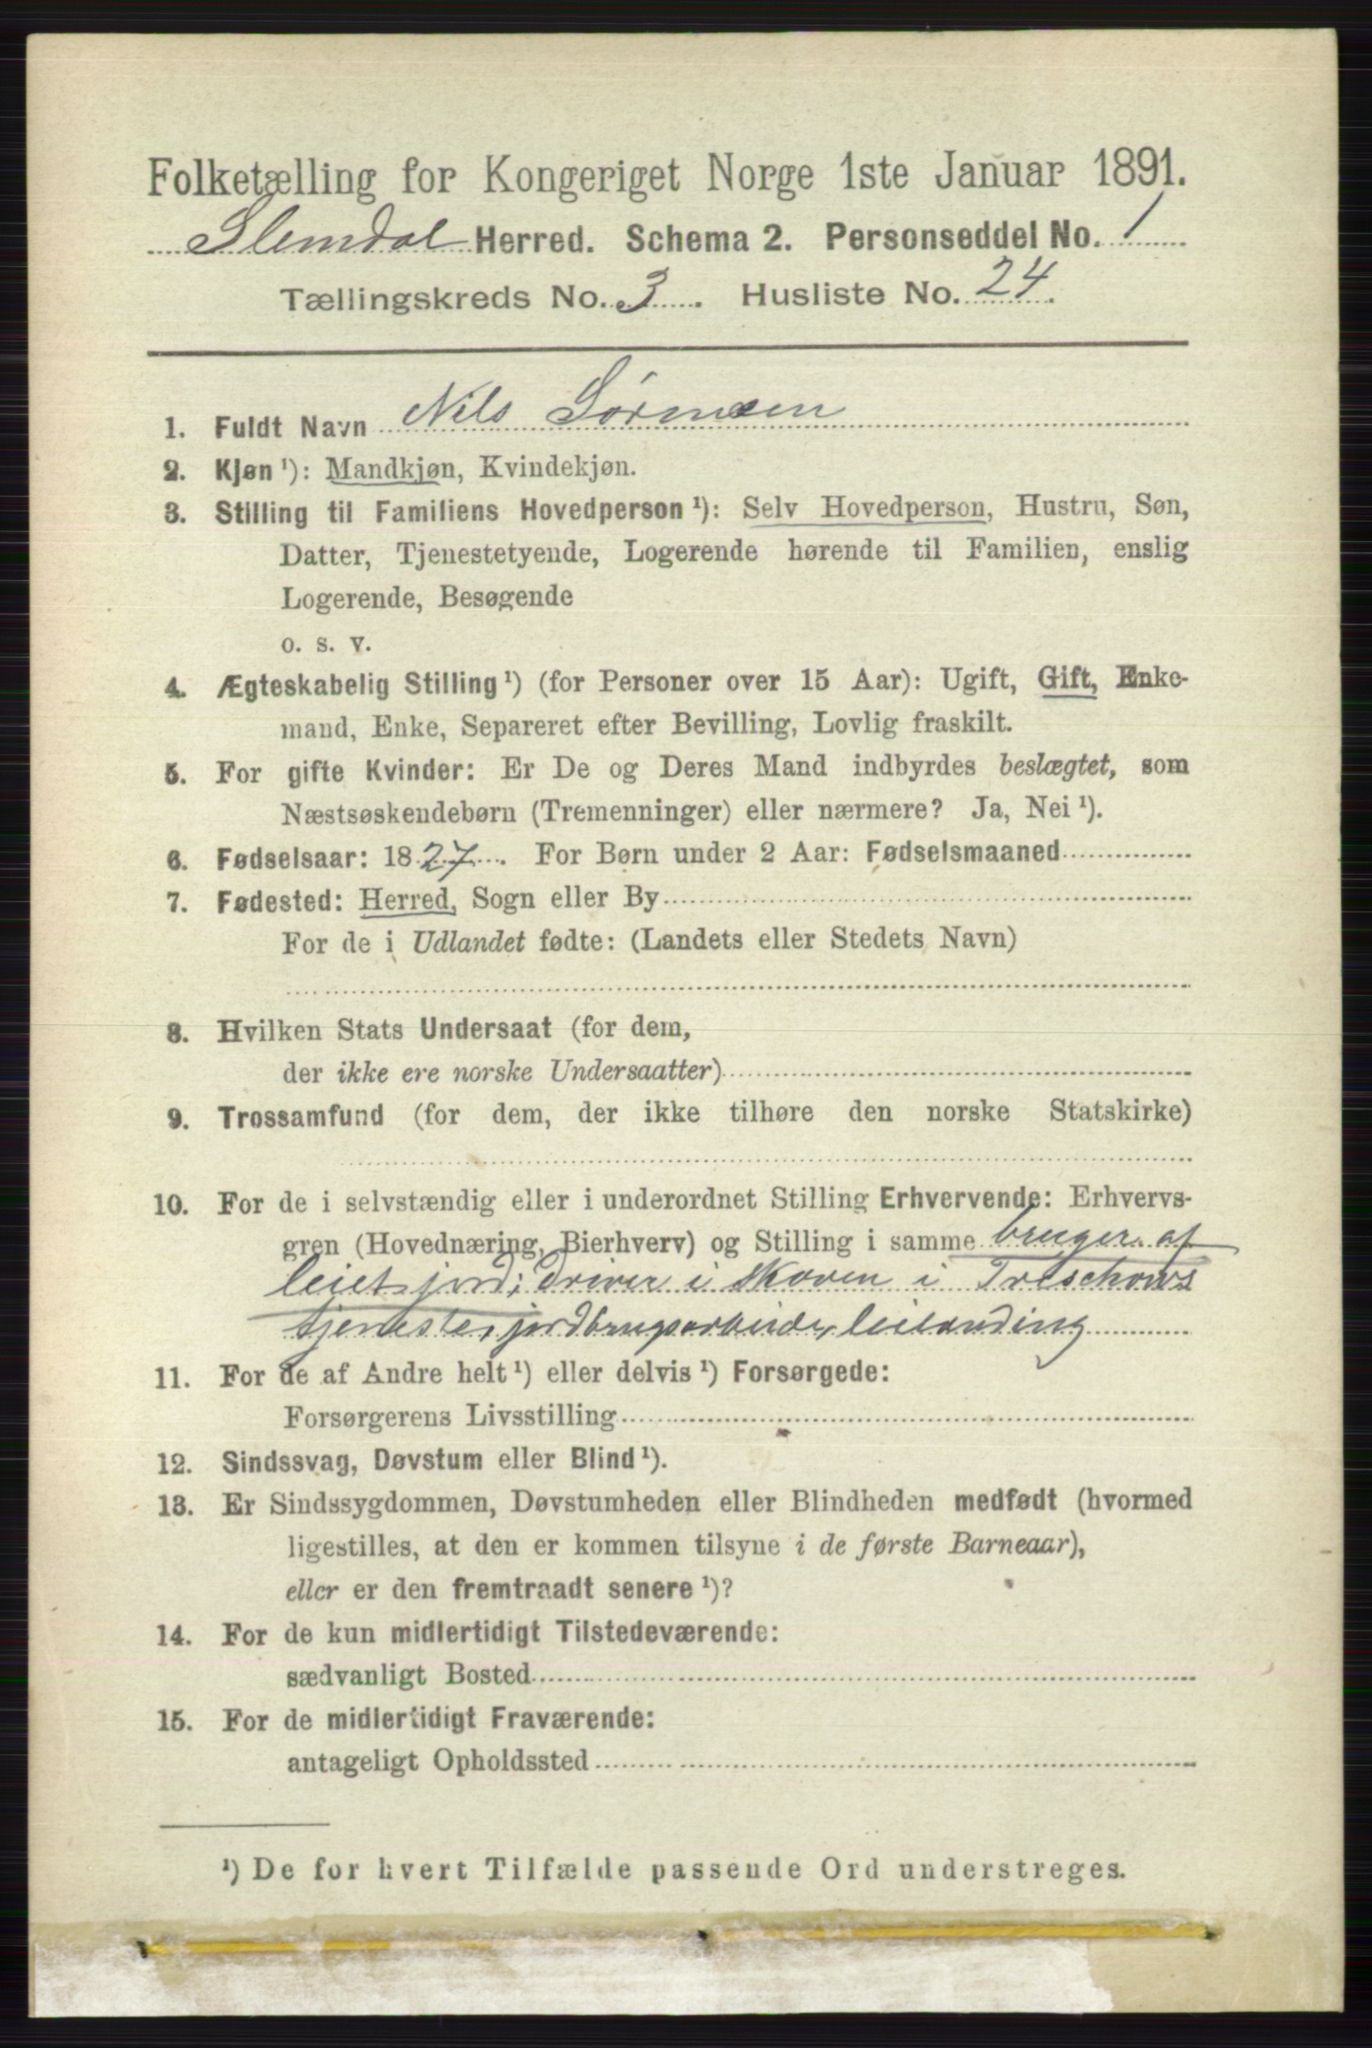 Folketælling for Kongeriget Norge 1ste Januar 1891.
Slemdal Herred. Schema 2. Personseddel No. 1
Tællingskreds No. 3. Husliste No. 24.
1. Fuldt Navn Nils Sørensen
2. Kjøn ¹): Mandkjøn, Kvindekjøn.
3. Stilling til Familiens Hovedperson ¹): Selv Hovedperson, Hustru, Søn,
Datter, Tjenestetyende, Logerende hørende til Familien, enslig
Logerende, Besøgende
o. s. v.
4. Ægteskabelig Stilling ¹) (for Personer over 15 Aar): Ugift, Gift, Enke-
mand, Enke, Separeret efter Bevilling, Lovlig fraskilt.
5. For gifte Kvinder: Er De og Deres Mand indbyrdes beslægtet, som
Næstsøskendebørn (Tremenninger) eller nærmere? Ja, Nei ¹).
6. Fødselsaar: 1827. For Børn under 2 Aar: Fødselsmaaned
7. Fødested: Herred, Sogn eller By
For de i Udlandet fødte: (Landets eller Stedets Navn)
8. Hvilken Stats Undersaat (for dem,
der ikke ere norske Undersaatter)
9. Trossamfund (for dem, der ikke tilhøre den norske Statskirke)
10. For de i selvstændig eller i underordnet Stilling Erhvervende: Erhvervs-
gren (Hovednæring, Bierhverv) og Stilling i samme bruger af
leiet jord; driver i skoven i Treschows
tjeneste, jordbrugsarbeide, leilending
11. For de af Andre helt ¹) eller delvis ¹) Forsørgede:
Forsørgerens Livsstilling
12. Sindssvag, Døvstum eller Blind ¹).
13. Er Sindssygdommen, Døvstumheden eller Blindheden medfødt (hvormed
ligestilles, at den er kommen tilsyne i de første Barneaar),
eller er den fremtraadt senere ¹)?
14. For de kun midlertidigt Tilstedeværende:
sædvanligt Bosted
15. For de midlertidigt Fraværende:
antageligt Opholdssted
¹) De for hvert Tilfælde passende Ord understreges.